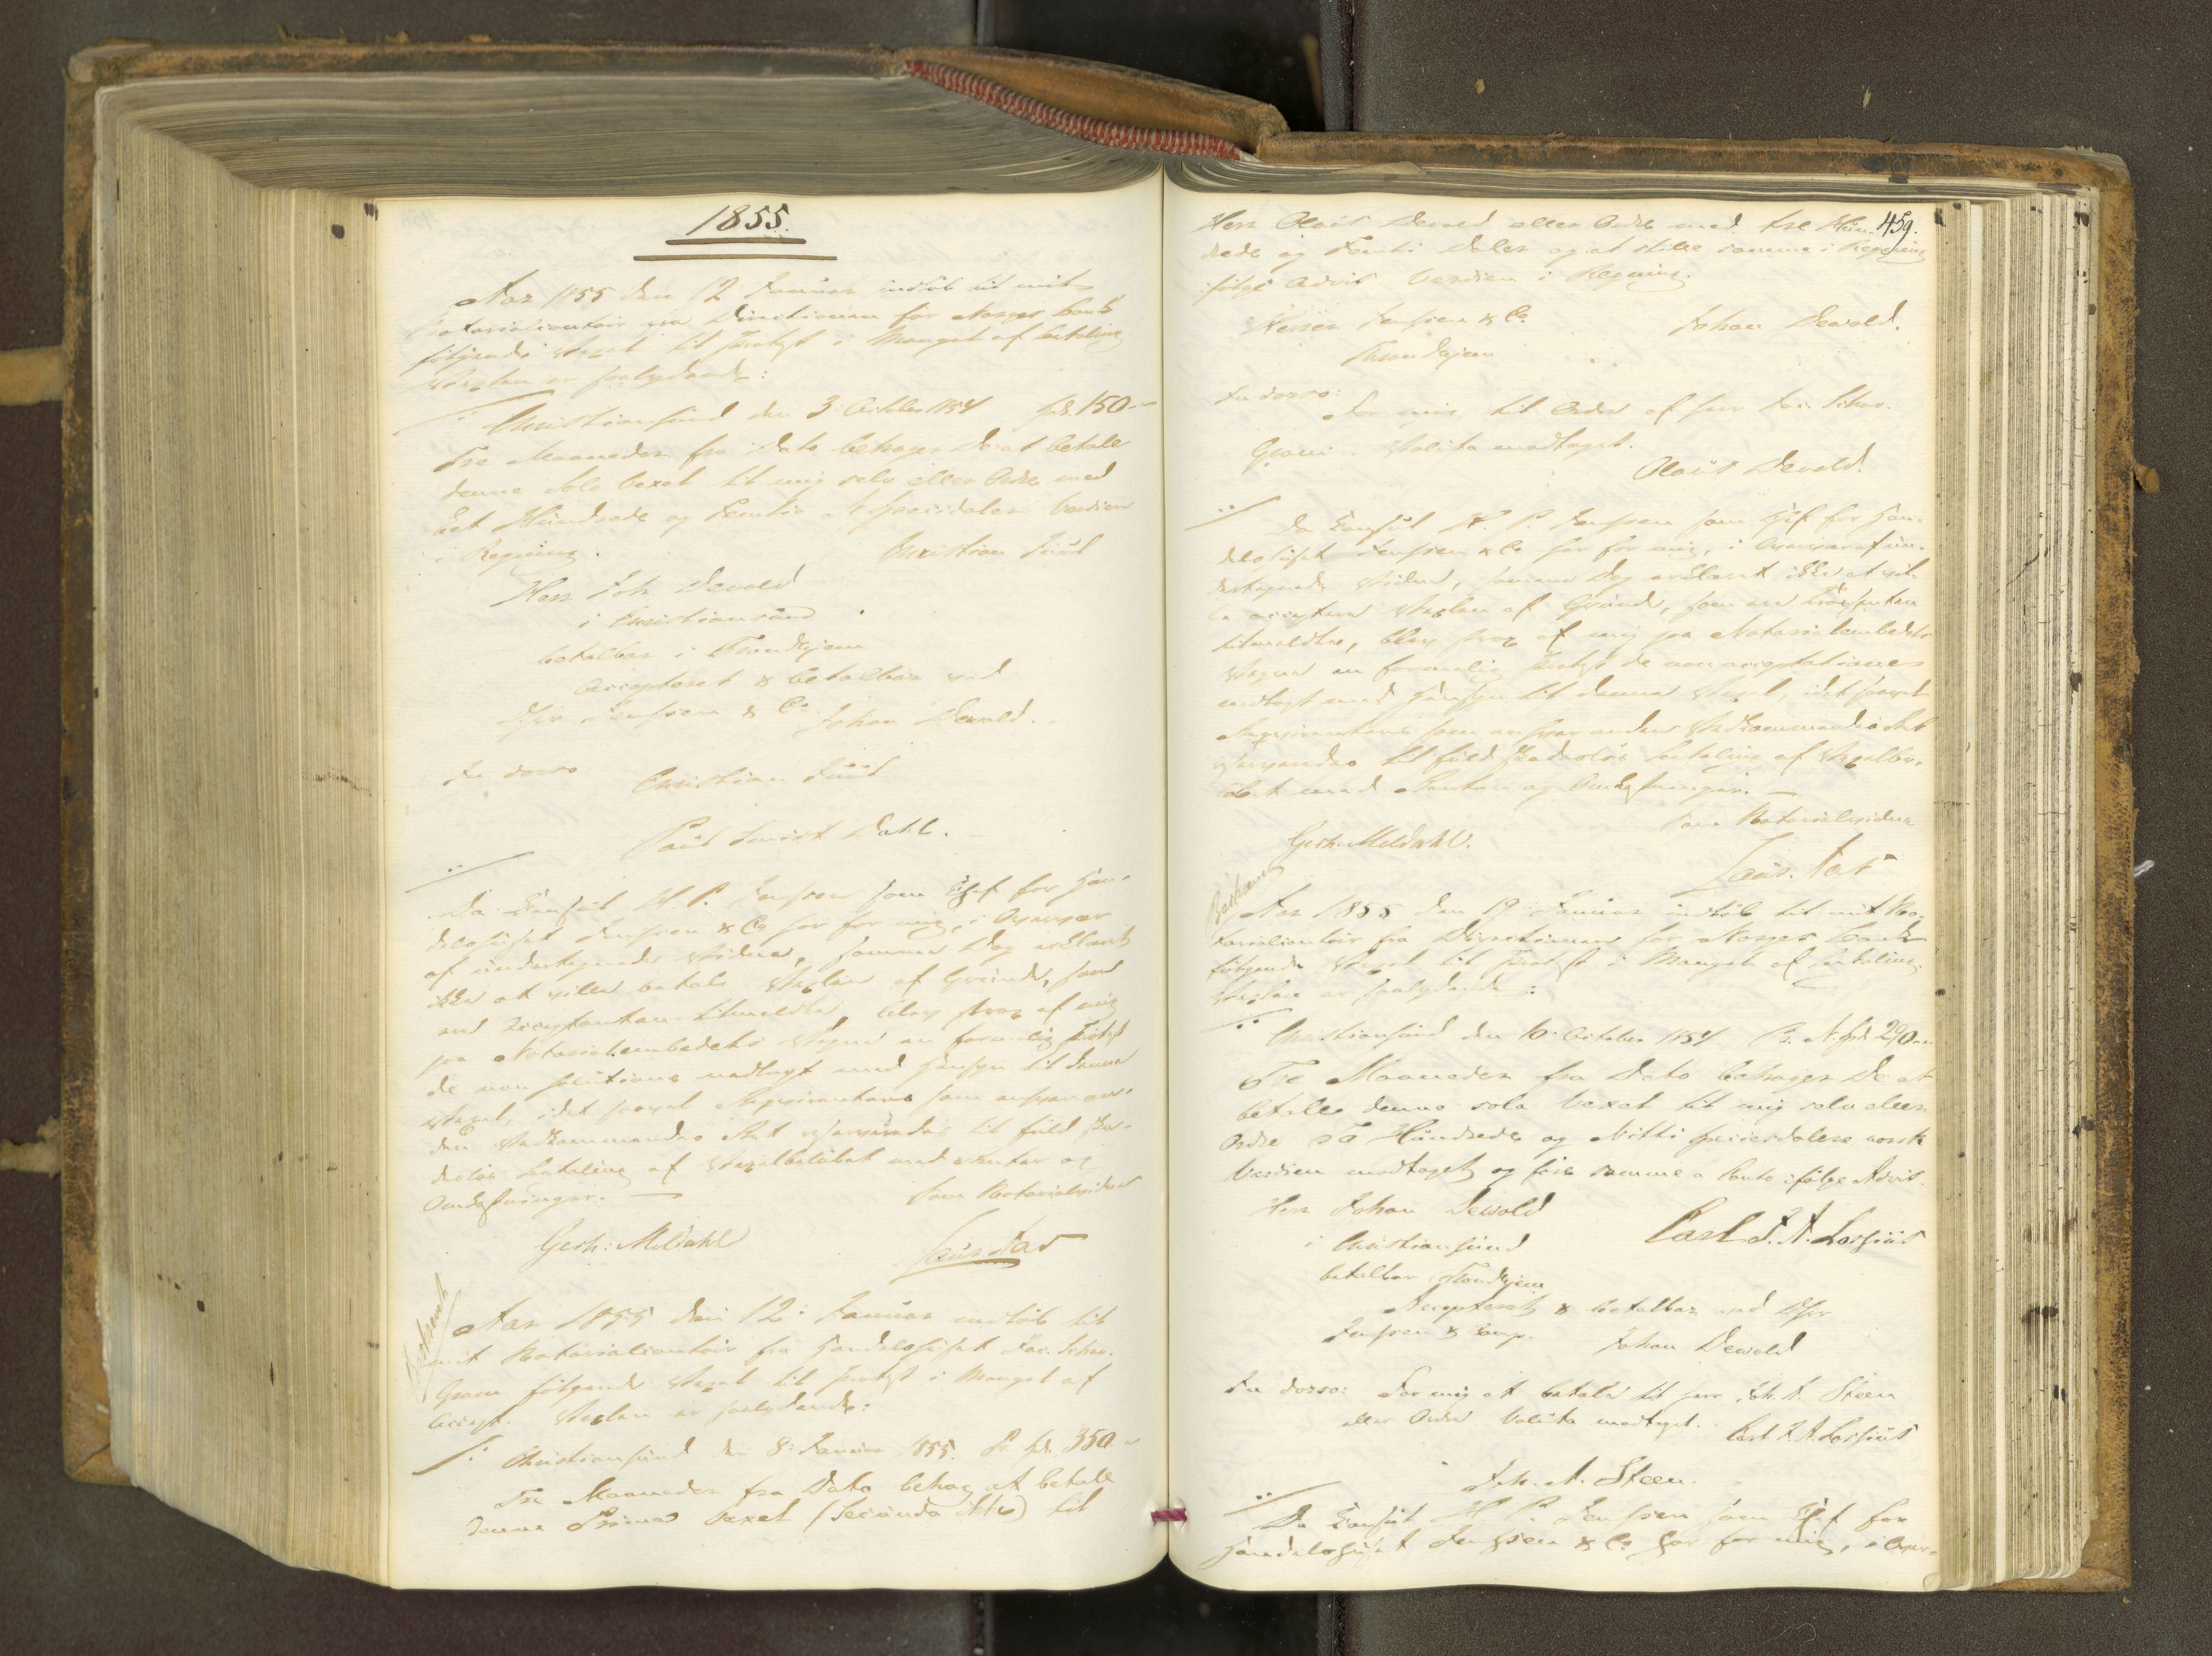 1855.
Aar 1855 den 12 Januar indløb til mit
Notarialcontoir fra Directionen for Norges Bank
følgende Vexel til Protest i Mangel af Betaling
Vexlen er saalydende:
Christiansund den 3 October 1854 Spd. 150
Tre Maaneder fra Dato behager De at betale
denne Sola Vexel til mig selv eller Ordre med
Eet Hundrede og Femtie N Speciedaler Verdien
i Regning. Christian Juul
Herr Joh Dewold
i Christiansund
betalbar i Trondhjem
Accepteret & betalbar ved
Hrr Jenssen & Co. Johan Dewold.
In dorso Christian Juul
Dahl.
Da Consul H. P. Jenssen som Chef for Han-
delshuset Jenssen & Co har for mig, i Overvær
af undertegnede Vidner, samme Dag erklæret
ikke at ville betale Vexlen af Grunde, som
ere Acceptanten tilmeldte, blev strax af mig
paa Notarialembedets Vegne en formelig Protest
de non solutione modtagt med Hensyn til denne
Vexel, idet saavel som enhver an-
den Vedkommendes Ret reserveredes til fuld ska-
desløs Betaling af Vexelbeløbet med Renter og
Omkostninger. Som Notarialvidner
Gerh: Meldahl
Aar 1855 den 12: Januar indløb til
mit Notarialcontoir fra Handelshuset Jac. Schav.
Gram følgende Vexel til Protest i Mangel af
Accept. Vexlen er saalydende:
Christiansund den 8: Januar 1855. Spd. 350
Tre Maaneder fra Dato behag at betale
denne Prima Vexel (Secunda ikke) til
459.
Herr Olaus Dewold eller Ordre med tre Hun-
drede og Femti Daler og at stille samme i Regning
ifølge Advis Verdien i Regning.
Jenssen & Co. Johan Dewold.
Trondhjem
In dorso:
For mig til Ordre af Herr Jac. Schav.
Gram. Valuta modtaget.
Olaus Dewold.
Da Consul H. P. Jenssen som Chef for Han-
delshuset Jenssen & Co har for mig, i Overvær af un-
dertegnede Vidner, samme Dag erklæret ikke at vil-
le acceptere Vexlen af Grunde, som ere
tilmeldte, blev strax af mig paa Notarialembedets
Vegne en formelig Protest de non acceptationes
modtagt med Hensyn til denne Vexel, idet saavel
som enhver anden Vedkommendes Ret
reserveredes til fuld skadesløs Betaling af Vexelbe-
løbet med Renter og Omkostninger.
Som Notarialvidner
Gerh: Meldahl.
Aar 1855 den 19: Januar indløb til mit No-
tarialcontoir fra Directionen for Norges Bank
følgende Vexel til Protest i Mangel af Betaling.
Vexlen er saalydende:
Christiansund den 10: October 1854 N. Spd 290
Tre Maaneder fra Dato behager De at
betale denne sola Vexel til mig selv eller
Ordre To Hundrede og Nitti Speciesdalere norsk
Verdien modtaget og føre samme a Conto ifølge Advis.
Herr Johan Dewold
Carl F. A. Lossius
i Christiansund
betalbar Trondhjem
Accepteret & betalbar ved Hrr
Jenssen & Comp. Johan Dewold
In dorso: For mig at betale til Herr Joh. A. Steen
eller Ordre Valuta modtaget. Carl F. A. Lossius
Joh. A. Steen.
Da Consul H P. Jenssen som Chef for
Handelshuset Jenssen & Co har for mig, i Over-